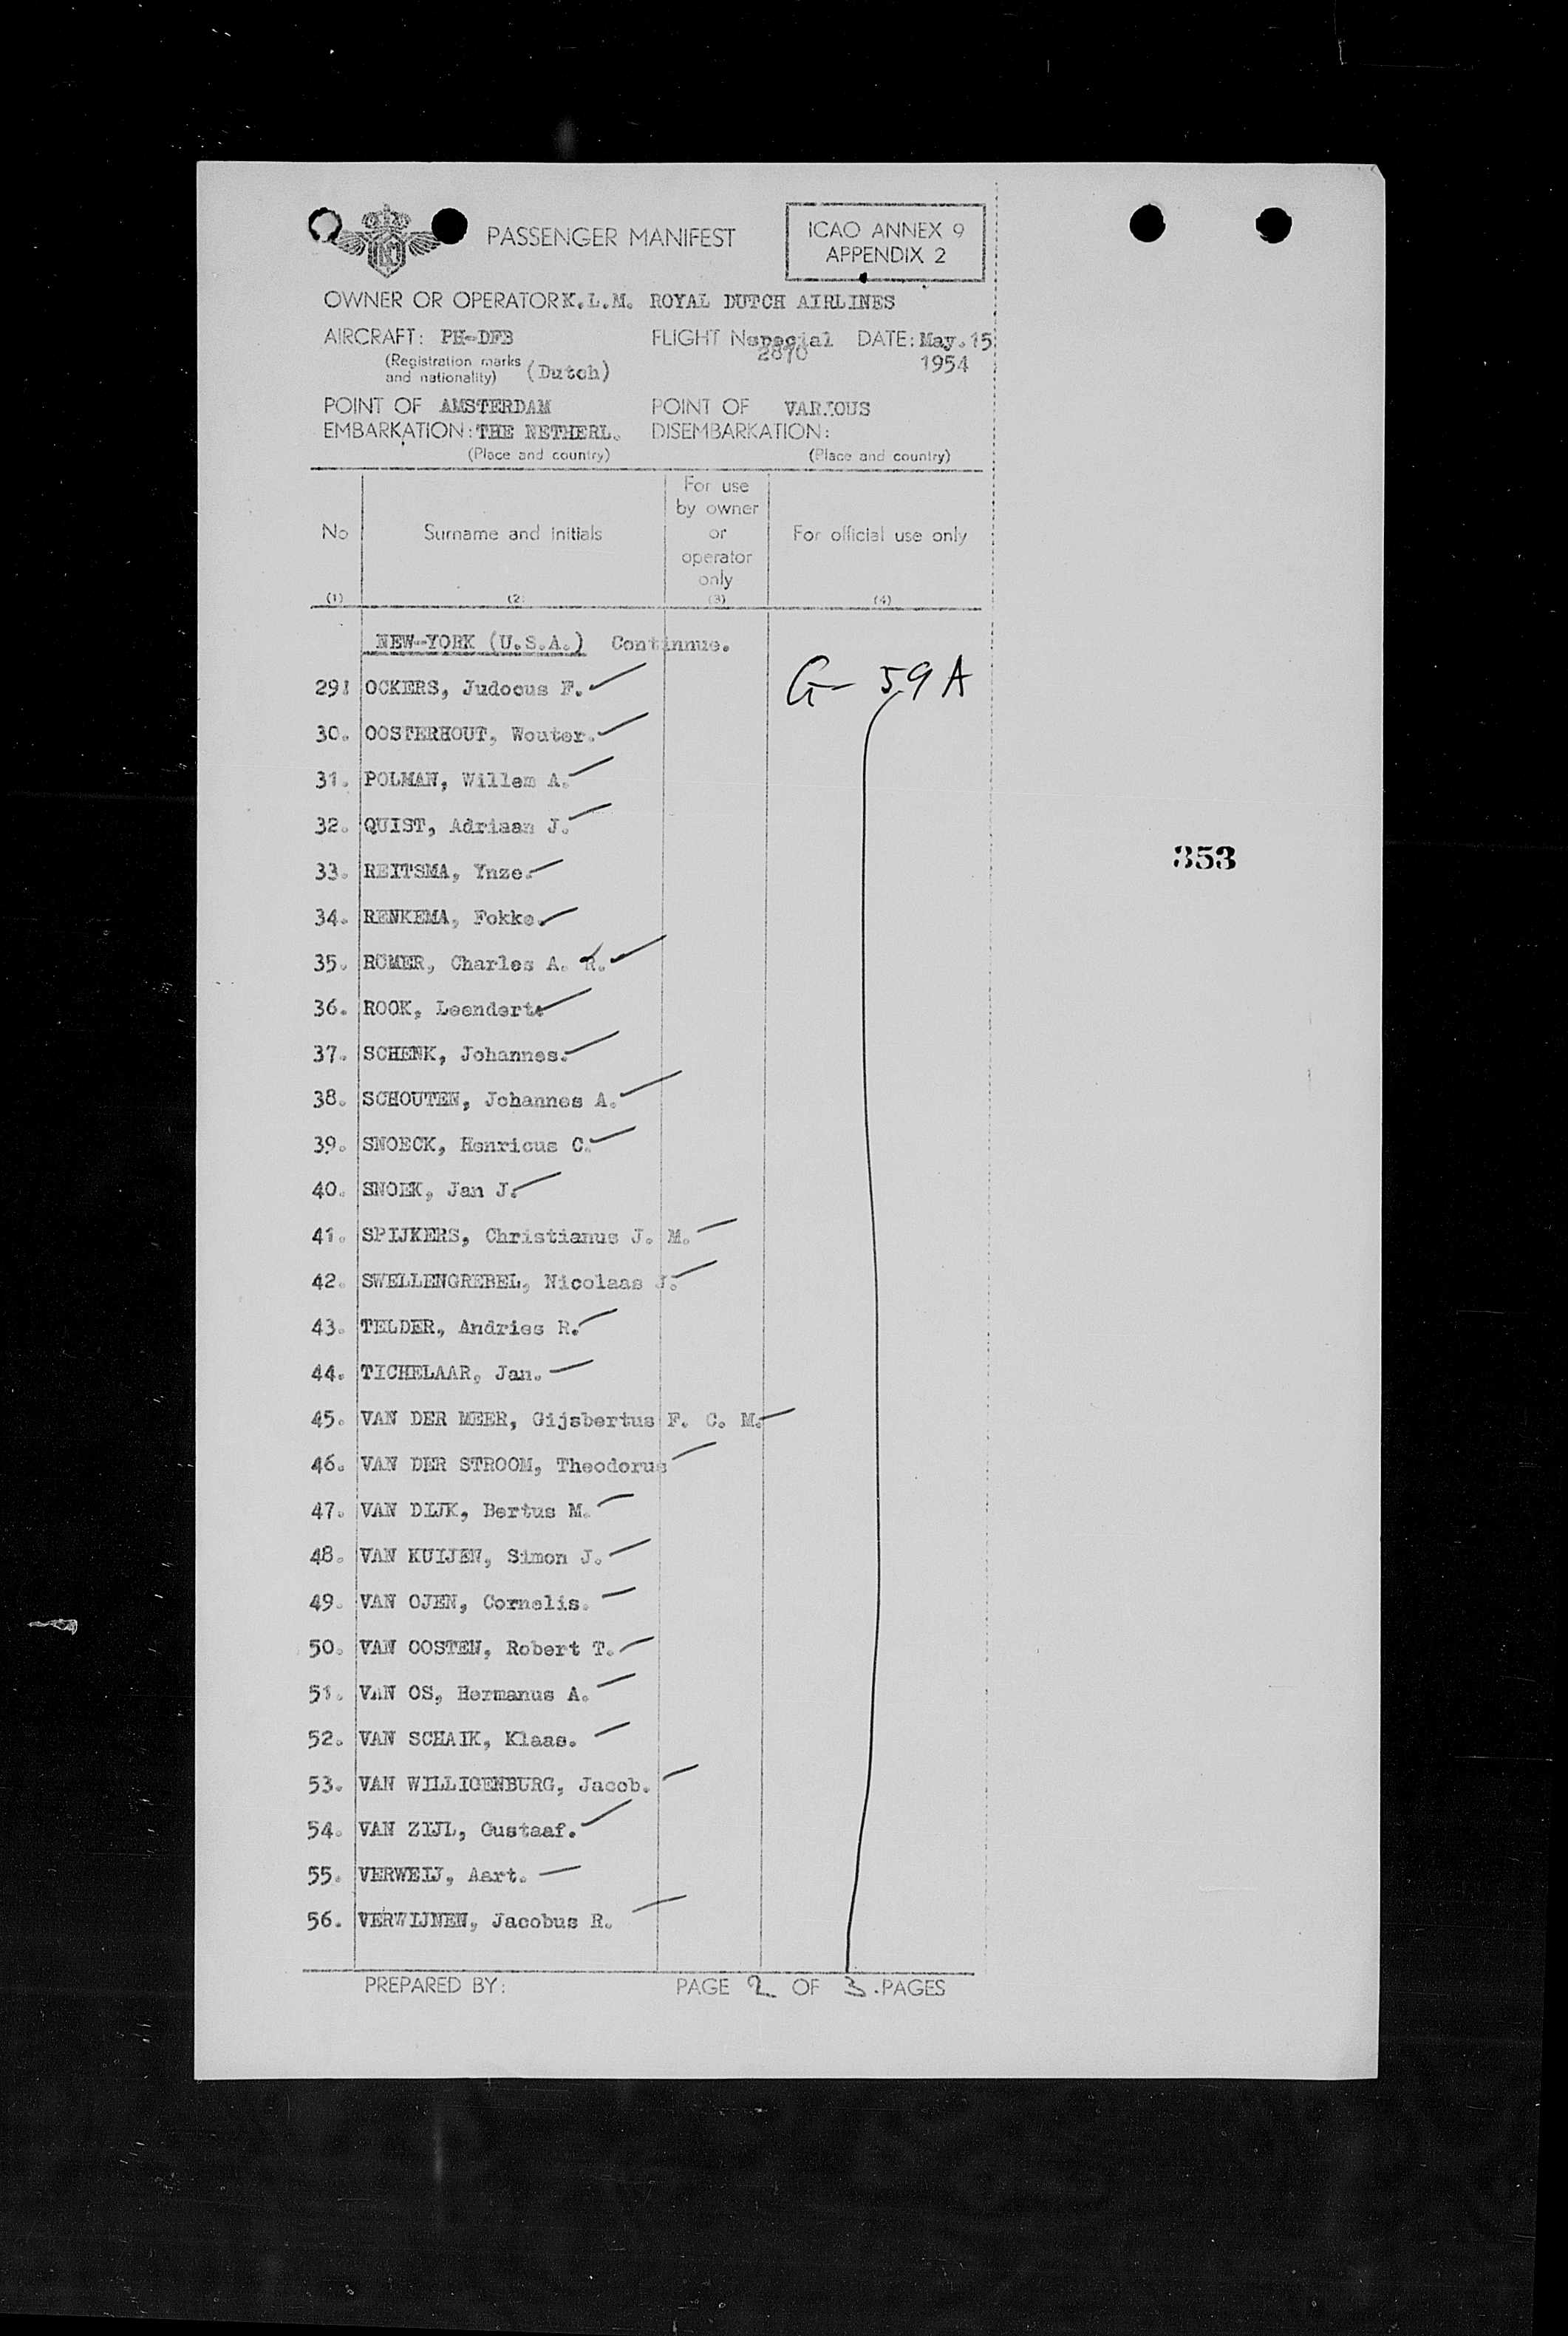 PASSENGER MANIFEST
ICAO ANNEX 9
APPENDIX 2
OWNER OR OPERATOR K.L.M. ROYAL DUTCH AIRLINES
AIRCRAFT: PH-DFB FLIGHT No special DATE: May.15
2870 1954
(Registration marks
and nationality) (Dutch)
POINT OF AMSTERDAM POINT OF VARIOUS
EMBARKATION: THE NETHERL. DISEMBARKATION:
(Place and country) (Place and country)
No Surname and initials For use by owner or operator only For official use only
(1) (2) (3) (4)
NEW-YORK (U.S.A.) Continnue.
G- 59 A
29! OCKERS, Judocus F.
30. OOSTERHOUT, Wouter.
31. POLMAN, Willem A.
32. QUIST, Adriaan J.
33. REITSMA, Ynze.
34. RENKEMA, Fokke.
35. ROMER, Charles A. R.
36. ROOK, Leendert.
37. SCHENK, Johannes.
38. SCHOUTEN, Johannes A.
39. SNOECK, Henricus C.
40. SNOEK, Jan J.
41. SPIJKERS, Christianus J. M.
42. SWELLENGREBEL, Nicolaas J.
43. TELDER, Andries R.
44. TICHELAAR, Jan.
45. VAN DER MEER, Gijsbertus F. C. M.
46. VAN DER STROOM, Theodorus
47. VAN DIJK, Bertus M.
48. VAN KUIJEN, Simon J.
49. VAN OJEN, Cornelis.
50. VAN OOSTEN, Robert T.
51. VAN OS, Hermanus A.
52. VAN SCHAIK, Klaas.
53. VAN WILLIGENBURG, Jacob.
54. VAN ZIJL, Gustaaf.
55. VERWEIJ, Aart.
56. VERWIJNEN, Jacobus R.
PREPARED BY: PAGE 2 OF 3 .PAGES
353